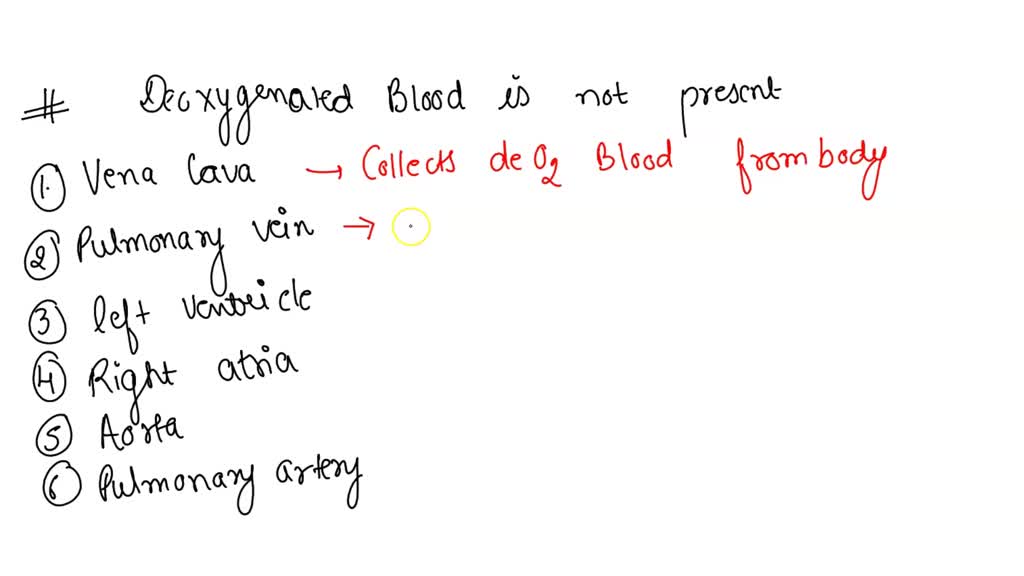 # Deoxygenated Blood is not present
1. Vena Cava → Collects de O2 Blood from body
2 Pulmonary vein →
3 left ventricle
4 Right atria
5 Aorta
6 Pulmonary artery